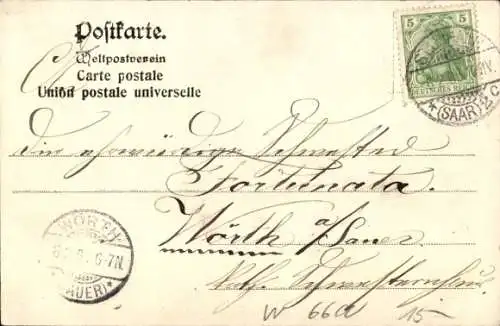 Postkarte.
Weltpostverein
Carte postale
Union postale universelle
5 5
DEUTSCHES REICH
(SAAR) 2 C
Die ehrwürdige Schwester
Fortunata.
Wörth a/Sauer.
Kath. Schwesternhaus
WÖRTH
6-7N.
(SAUER)
W 66a 15-